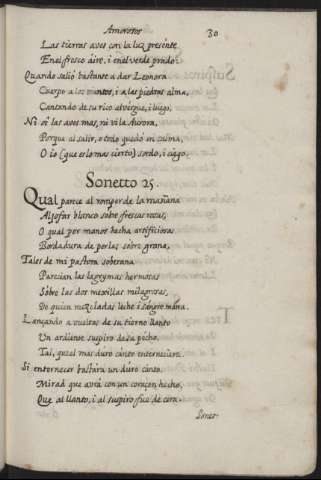 Amorosos
30
Las tiernas aves con la luz presente
En el fresco aire, i en el verde prado:
Quando salio bastante a dar Leonora
Cuerpo a los vientos, i a las piedras alma,
Cantando de su rico alvergue, i luego,
Ni oí las aves mas, ni vi la Aurora,
Porque al salir, o todo quedó en calma,
O io (que es lo mas cierto) sordo, i ciego.
Sonetto 25
Qual parece al romper de la mañana
Aljofar blanco sobre frescas rosas,
O qual por manos hecha artificiosas
Bordadura de perlas sobre grana,
Tales de mi pastora soberana
Parecian las lagrymas hermosas
Sobre las dos mexillas milagrosas,
De quien mezcladas leche i sangre mana.
Lançando a vueltas de su tierno llanto
Un ardiente suspiro de su pecho,
Tal, que el mas duro canto enterneciera.
Si enternecer bastára un duro canto,
Mirad que avrá con un coraçon hecho,
Que al llanto, i al suspiro fue de cera.
Sonet-